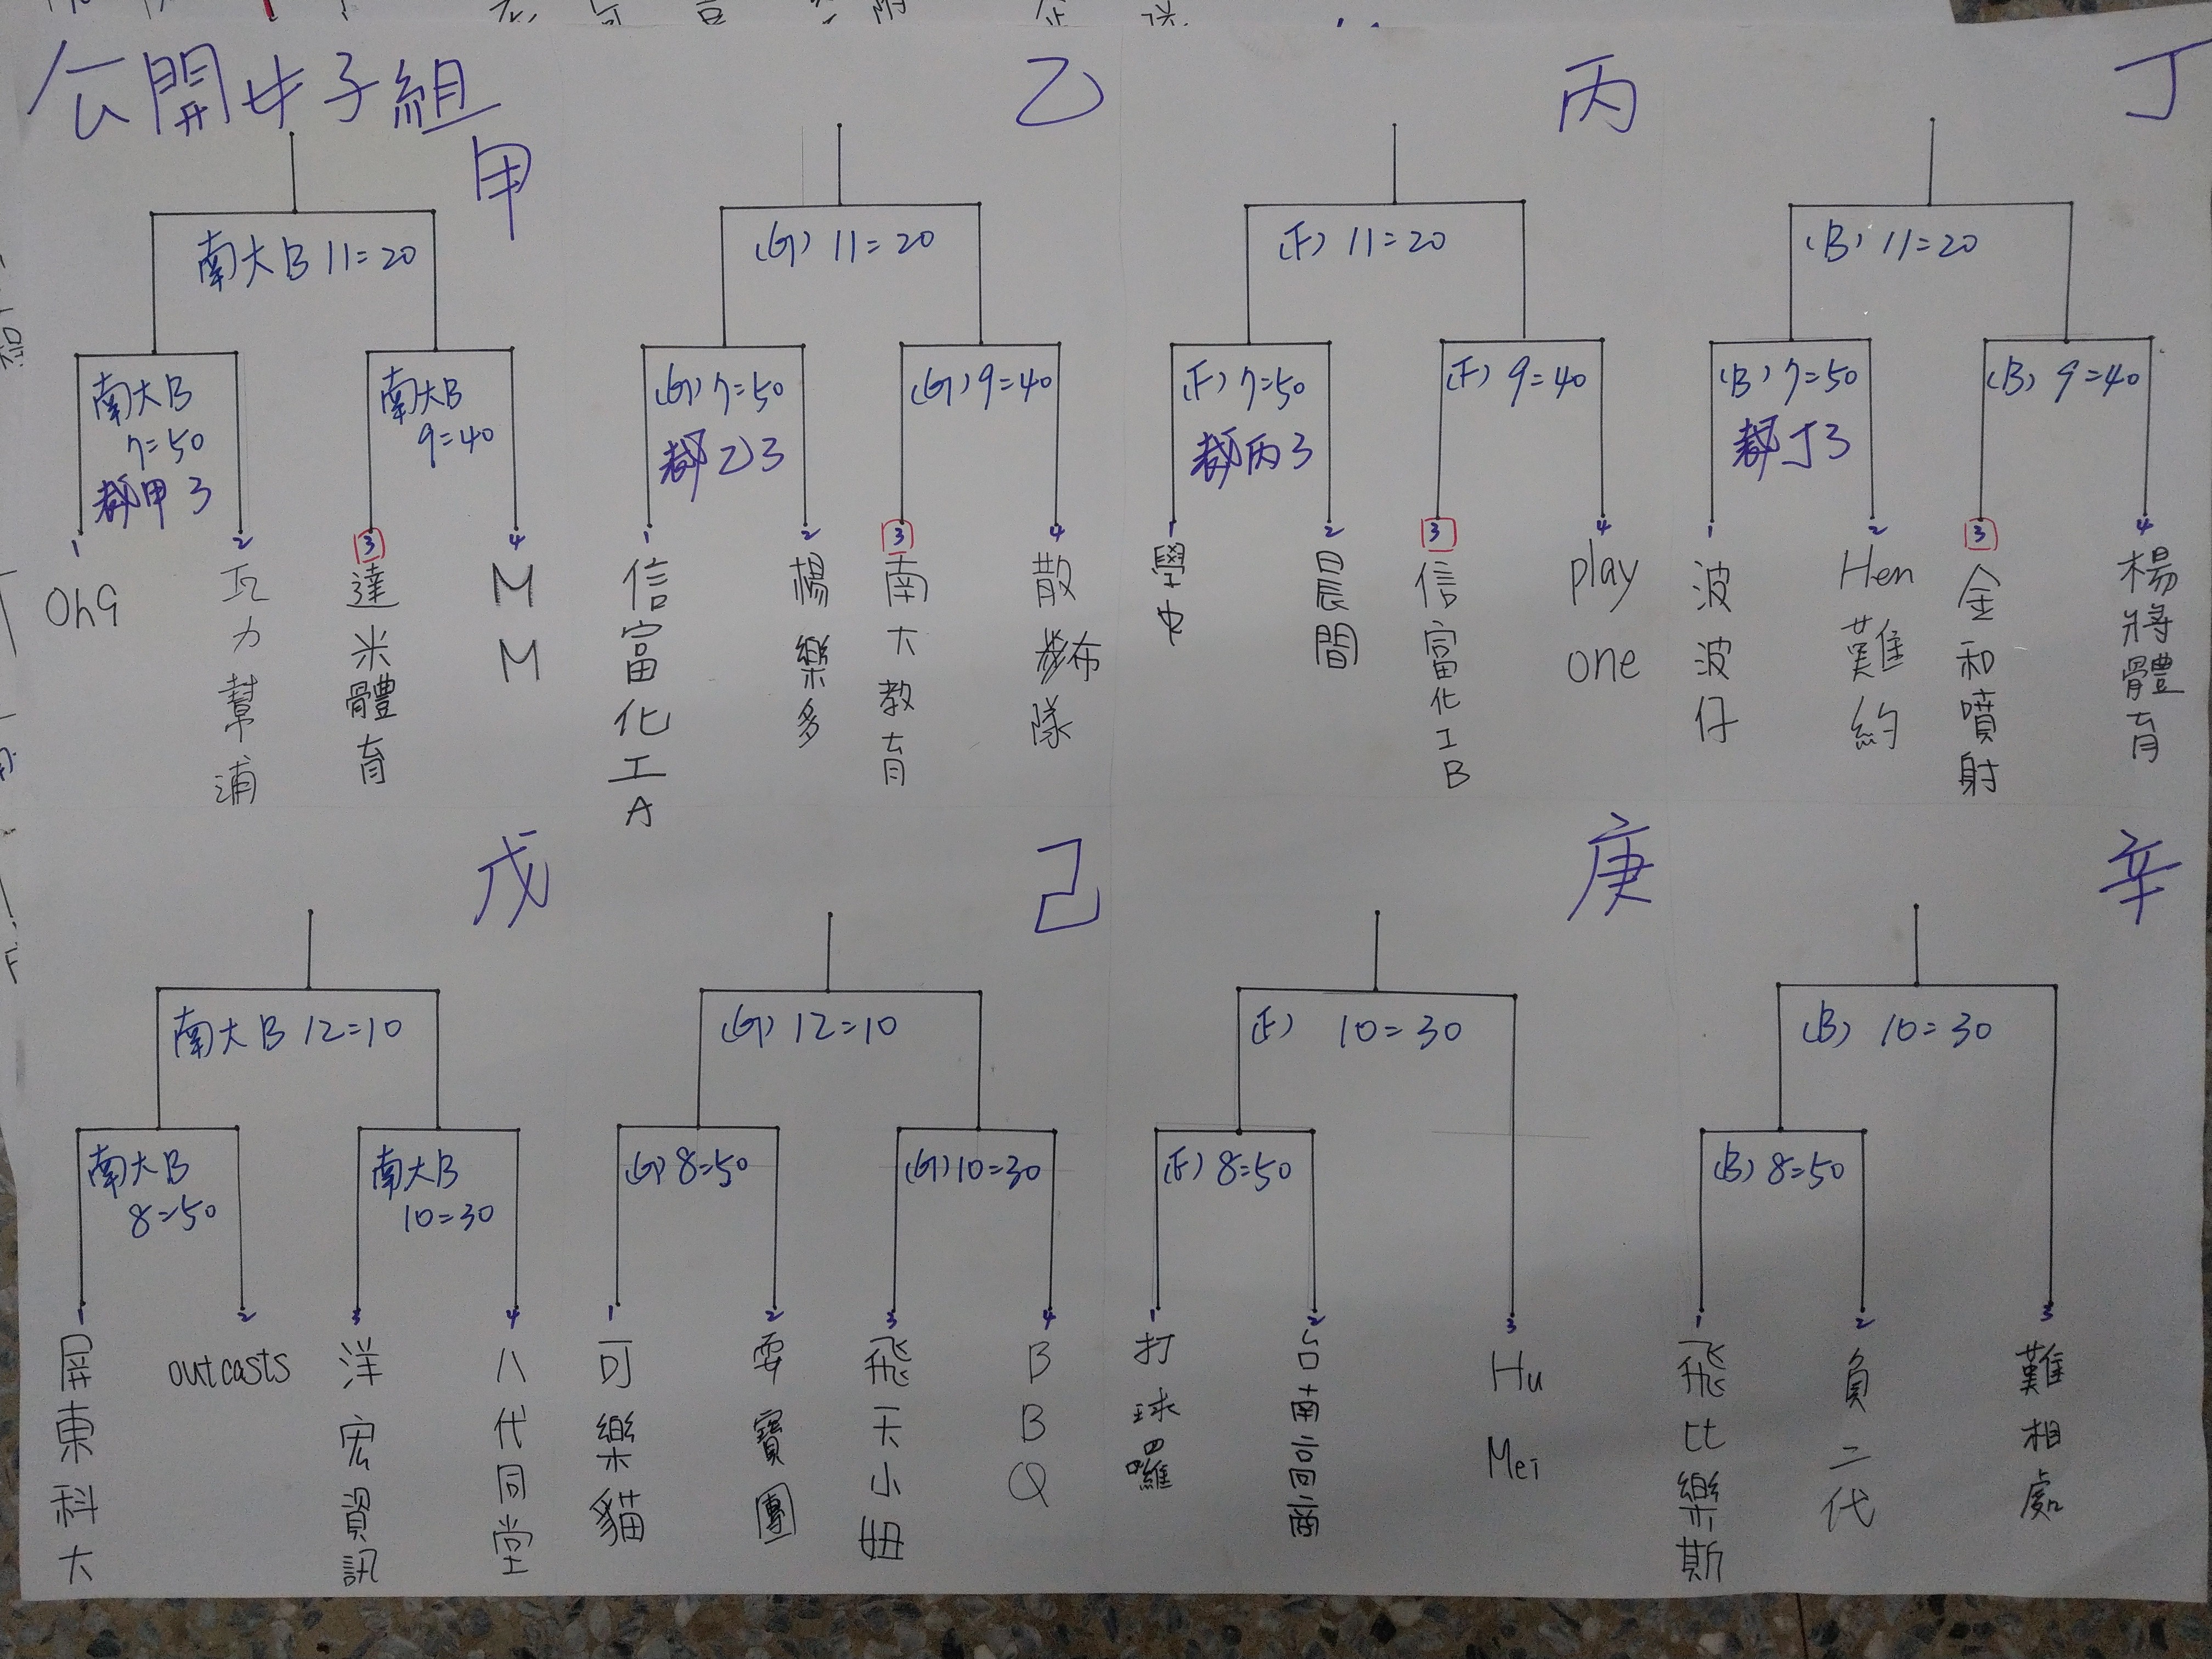 公開女子組
甲
乙
丙
丁
南大B 11=20
(G) 11=20
(F) 11=20
(B) 11=20
南大B
7=50
裁甲3
南大B
9=40
(G) 7=50
裁乙3
(G) 9=40
(F) 7=50
裁丙3
(F) 9=40
(B) 7=50
裁丁3
(B) 9=40
1
Oh9
2
瓦力幫浦
3
達米體育
4
MM
1
信富化工A
2
楊樂多
3
南大教育
4
散布隊
1
學史
2
晨間
3
信富化工B
4
play
one
1
波波仔
2
Hen難約
3
金和噴射
4
楊將體育
戊
己
庚
辛
南大B 12=10
(G) 12=10
(F) 10=30
(B) 10=30
南大B
8=50
南大B
10=30
(G) 8=50
(G) 10=30
(F) 8=50
(B) 8=50
1
屏東科大
2
outcasts
3
洋宏資訊
4
八代同堂
1
可樂貓
2
耍寶團
3
飛天小妞
4
BBQ
1
打球囉
2
台南高商
3
Hu
Mei
1
飛比樂斯
2
負二代
3
難相處